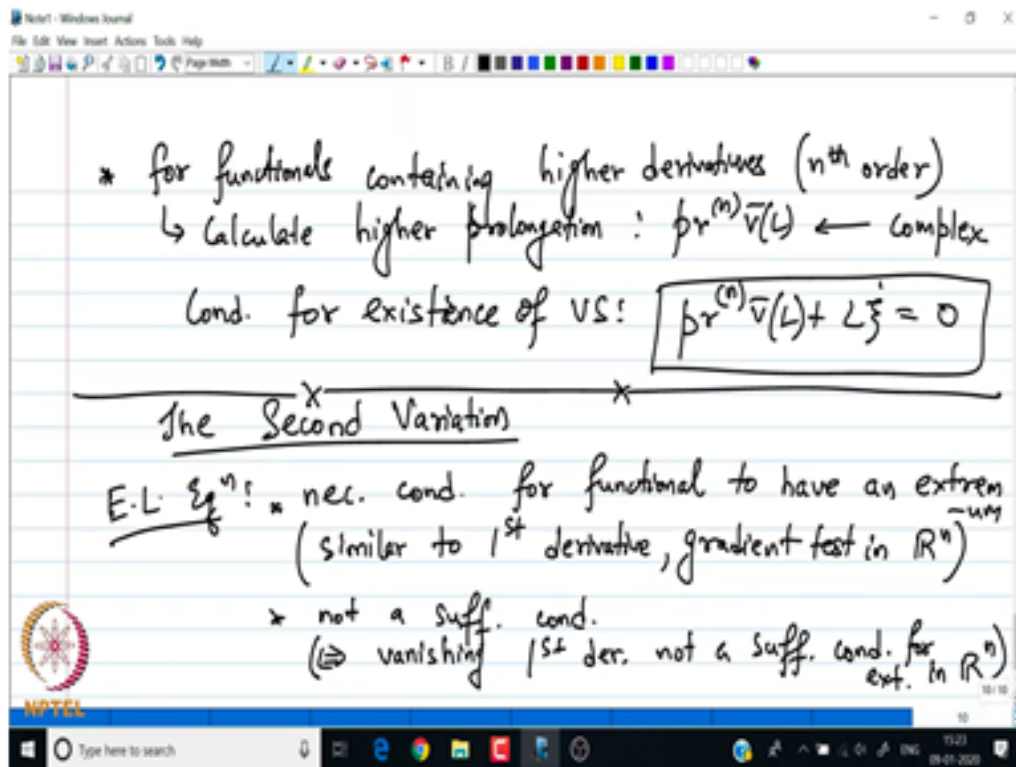 Note1 - Windows Journal
File Edit View Insert Actions Tools Help
Page Width
* for functionals containing higher derivatives (nth order)
↳ Calculate higher prolongation : pr⁽ⁿ⁾ v̄(L) ← complex
Cond. for existence of VS : pr⁽ⁿ⁾ v̄(L) + L ξ̇ = 0
The Second Variation
E.L. Eqⁿ : * nec. cond. for functional to have an extrem
-um
(similar to 1st derivative, gradient test in Rⁿ)
* not a suff. cond.
(⇒ vanishing 1st der. not a suff. cond. for
ext. in Rⁿ)
10/10
NPTEL
10
Type here to search
ENG
15:23
09-01-2020